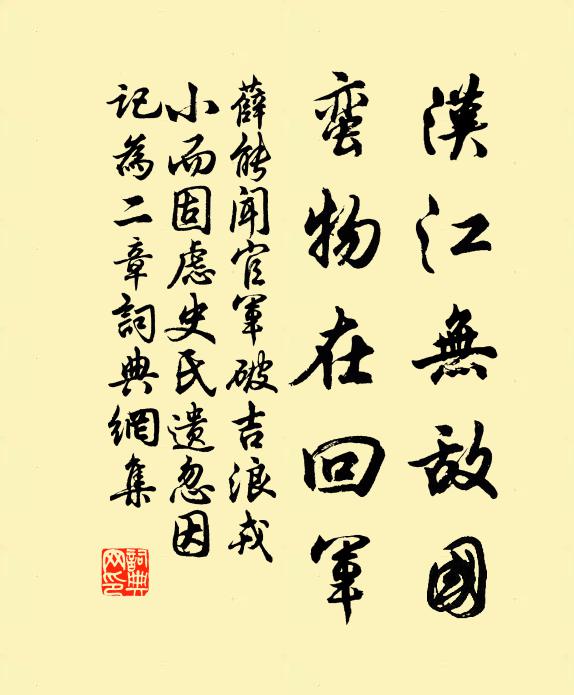 漢江無敵國
蛮物在回軍
薛能聞官軍破吉浪戎
小而固慮史氏遺忽因
記為二章詞典網集
詞典网印